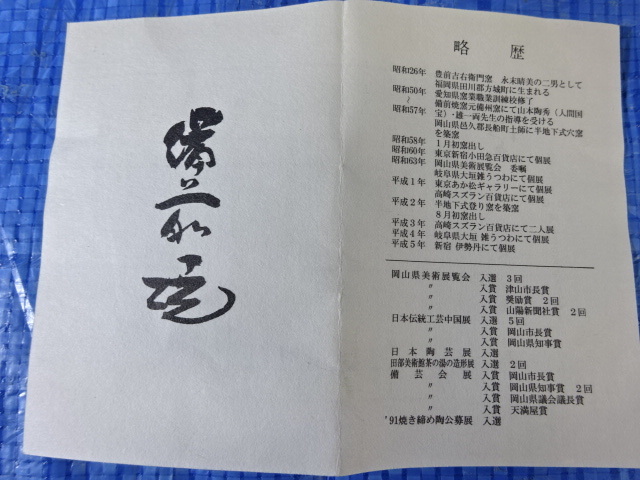 備前焼
略歴
昭和26年 豊前古右衛門窯 永末晴美の二男として
福岡県田川郡方城町に生まれる
昭和50年 愛知県窯業職業訓練校修了
〜 備前焼窯元備州窯にて山本陶秀(人間国
昭和57年 宝)・雄一両先生の指導を受ける
岡山県邑久郡長船町土師に半地下式穴窯
を築窯
昭和58年 1月初窯出し
昭和60年 東京新宿小田急百貨店にて個展
昭和63年 岡山県美術展覧会 委嘱
岐阜県大垣雑うつわにて個展
平成1年 東京あか松ギャラリーにて個展
高崎スズラン百貨店にて個展
平成2年 半地下式登り窯を築窯
8月初窯出し
平成3年 高崎スズラン百貨店にて二人展
平成4年 岐阜県大垣 雑うつわにて個展
平成5年 新宿 伊勢丹にて個展
岡山県美術展覧会 入選 3回
〃 入賞 津山市長賞
〃 入賞 奨励賞 2回
〃 入賞 山陽新聞社賞 2回
日本伝統工芸中国展 入選 5回
〃 入賞 岡山市長賞
〃 入賞 岡山県知事賞
日本陶芸展 入選
田部美術館茶の湯の造形展 入選 2回
備芸会展 入賞 岡山市長賞
〃 入賞 岡山県知事賞 2回
〃 入賞 岡山県議会議長賞
〃 入賞 天満屋賞
'91焼き締め陶公募展 入選